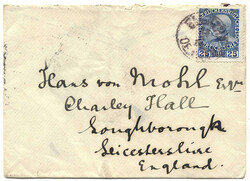 25 25
Hans von Mohl Esqre
Charley Hall
Loughborough
Leicestershire
England.